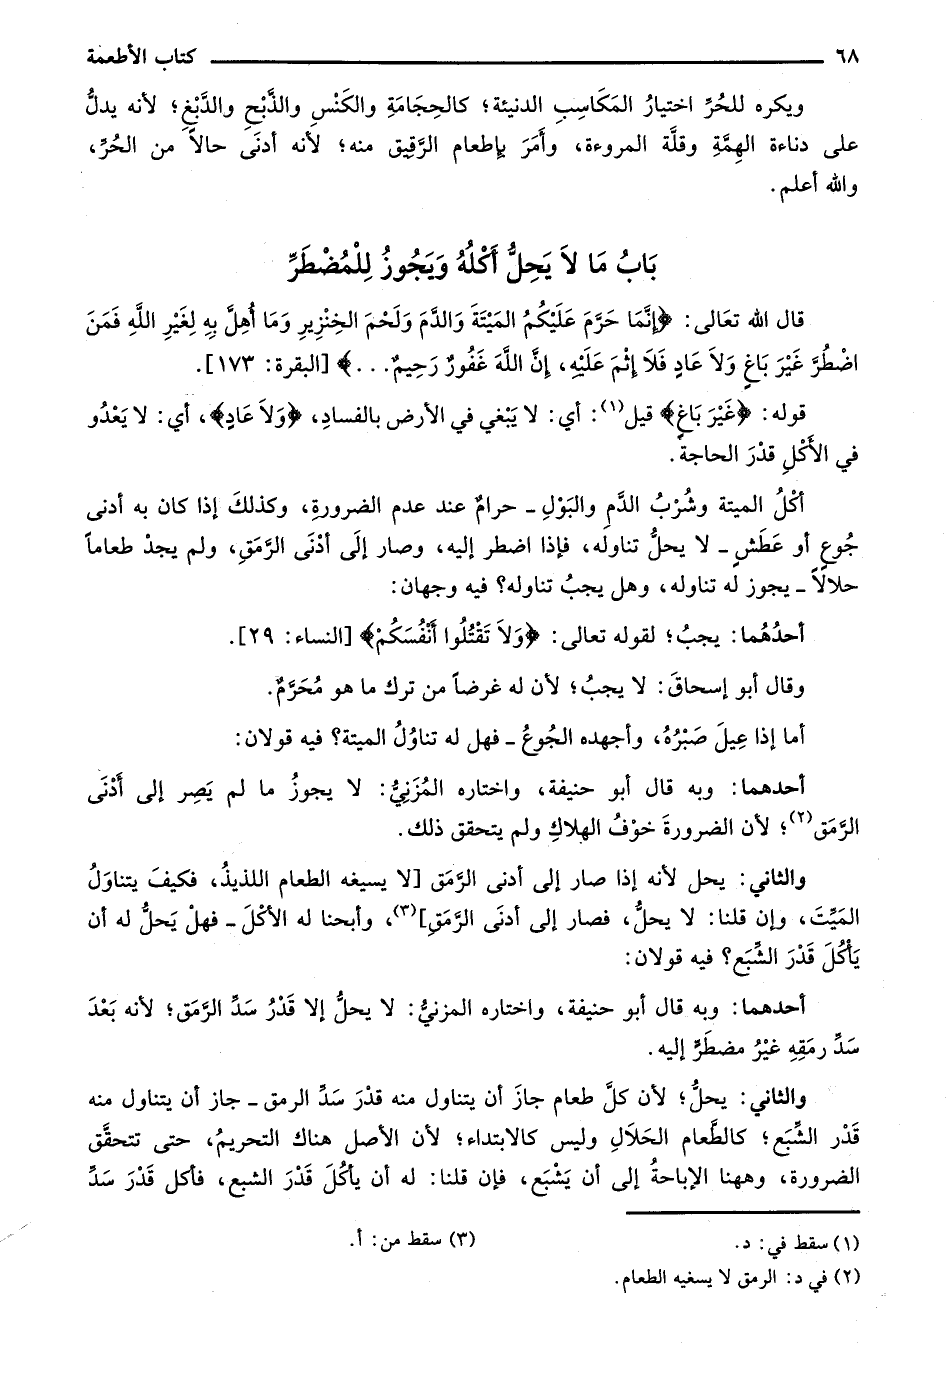 ٦٨ كتاب الأطعمة
ويكره للحُرِّ اختيارُ المَكَاسِبِ الدنيئة؛ كالحِجَامَةِ والكَنْسِ والذَّبْحِ والدَّبْغِ؛ لأنه يدلُّ
على دناءة الهِمَّةِ وقلَّة المروءة، وأَمَرَ بإطعام الرَّقيق منه؛ لأنه أدنَى حالاً من الحُرِّ،
والله أعلم.
بَابُ مَا لاَ يَحِلُّ أَكْلُهُ وَيَجُوزُ لِلْمُضْطَرِّ
قال الله تعَالى: ﴿إِنَّمَا حَرَّمَ عَلَيْكُمُ المَيْتَةَ وَالدَّمَ وَلَحْمَ الخِنْزِيرِ وَمَا أُهِلَّ بِهِ لِغَيْرِ اللَّهِ فَمَنَ
اضْطُرَّ غَيْرَ بَاغٍ وَلاَ عَادٍ فَلَا إِثْمَ عَلَيْهِ، إِنَّ اللَّهَ غَفُورٌ رَحِيمٌ. . .﴾ [البقرة: ١٧٣].
قوله: ﴿غَيْرَ بَاغٍ﴾ قيل(١): أي: لا يَبْغي في الأرض بالفسادِ، ﴿وَلاَ عَادٍ﴾، أي: لا يَعْدُو
في الأَكْلِ قدْرَ الحاجة.
أكْلُ الميتة وشُرْبُ الدَّمِ والبَوْلِ ـ حرامٌ عند عدم الضرورةِ، وكذلكَ إذا كان به أدنى
جُوعٍ أو عَطَشٍ ـ لا يحلُّ تناوله، فإذا اضطر إليه، وصار إلَى أدْنَى الرَّمَقِ، ولم يجدْ طعاماً
حلالاً ـ يجوز له تناوله، وهل يجبُ تناوله؟ فيه وجهان:
أحدُهُما: يجبُ؛ لقوله تعالى: ﴿وَلاَ تَقْتُلُوا أَنْفُسَكُمْ﴾ [النساء: ٢٩].
وقال أبو إسحاقَ: لا يجبُ؛ لأن له غرضاً من ترك ما هو مُحَرَّمٌ.
أما إذا عِيلَ صَبْرُهُ، وأجهده الجُوعُ ـ فهل له تناوُلُ الميتة؟ فيه قولان:
أحدهما: وبه قال أبو حنيفة، واختاره المُزَنِيُّ: لا يجوزُ ما لم يَصِر إلى أَدْنَى
الرَّمَق(٢)؛ لأن الضرورةَ خوْفُ الهلاكِ ولم يتحقق ذلك.
والثاني: يحل لأنه إذا صار إلى أدنى الرَّمَق [لا يسيغه الطعام اللذيذُ، فكيفَ يتناوَلُ
المَيِّتَ، وإن قلنا: لا يحلُّ، فصار إلى أدنَى الرَّمَقِ](٣)، وأبحنا له الأكْلَ ـ فهلْ يَحلُّ له أن
يَأكُلَ قَدْرَ الشِّبَعِ؟ فيه قولان:
أحدهما: وبه قال أبو حنيفة، واختاره المزنيُّ: لا يحلُّ إلا قَدْرُ سَدِّ الرَّمَق؛ لأنه بَعْدَ
سَدِّ رمَقِهِ غيْرُ مضطَرٍّ إليه.
والثاني: يحلُّ؛ لأن كلَّ طعام جازَ أن يتناول منه قدْرَ سَدِّ الرمق ـ جاز أن يتناول منه
قَدْر الشِّبَع؛ كالطَّعام الحَلَالِ وليس كالابتداء؛ لأن الأصل هناك التحريمُ، حتى تتحقَّق
الضرورة، وههنا الإباحةُ إلى أن يَشْبَع، فإن قلنا: له أن يأكُلَ قَدْرَ الشبع، فأكل قَدْرَ سَدِّ
(١) سقط في: د. (٣) سقط من: أ.
(٢) في د: الرمق لا يسغيه الطعام.